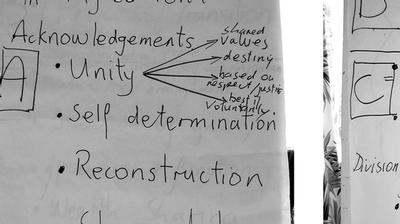 Acknowledgements
A
• Unity
shared
values
destiny
based on
respect / justice
best if
voluntarily.
• Self determination
• Reconstruction
B
C
Division